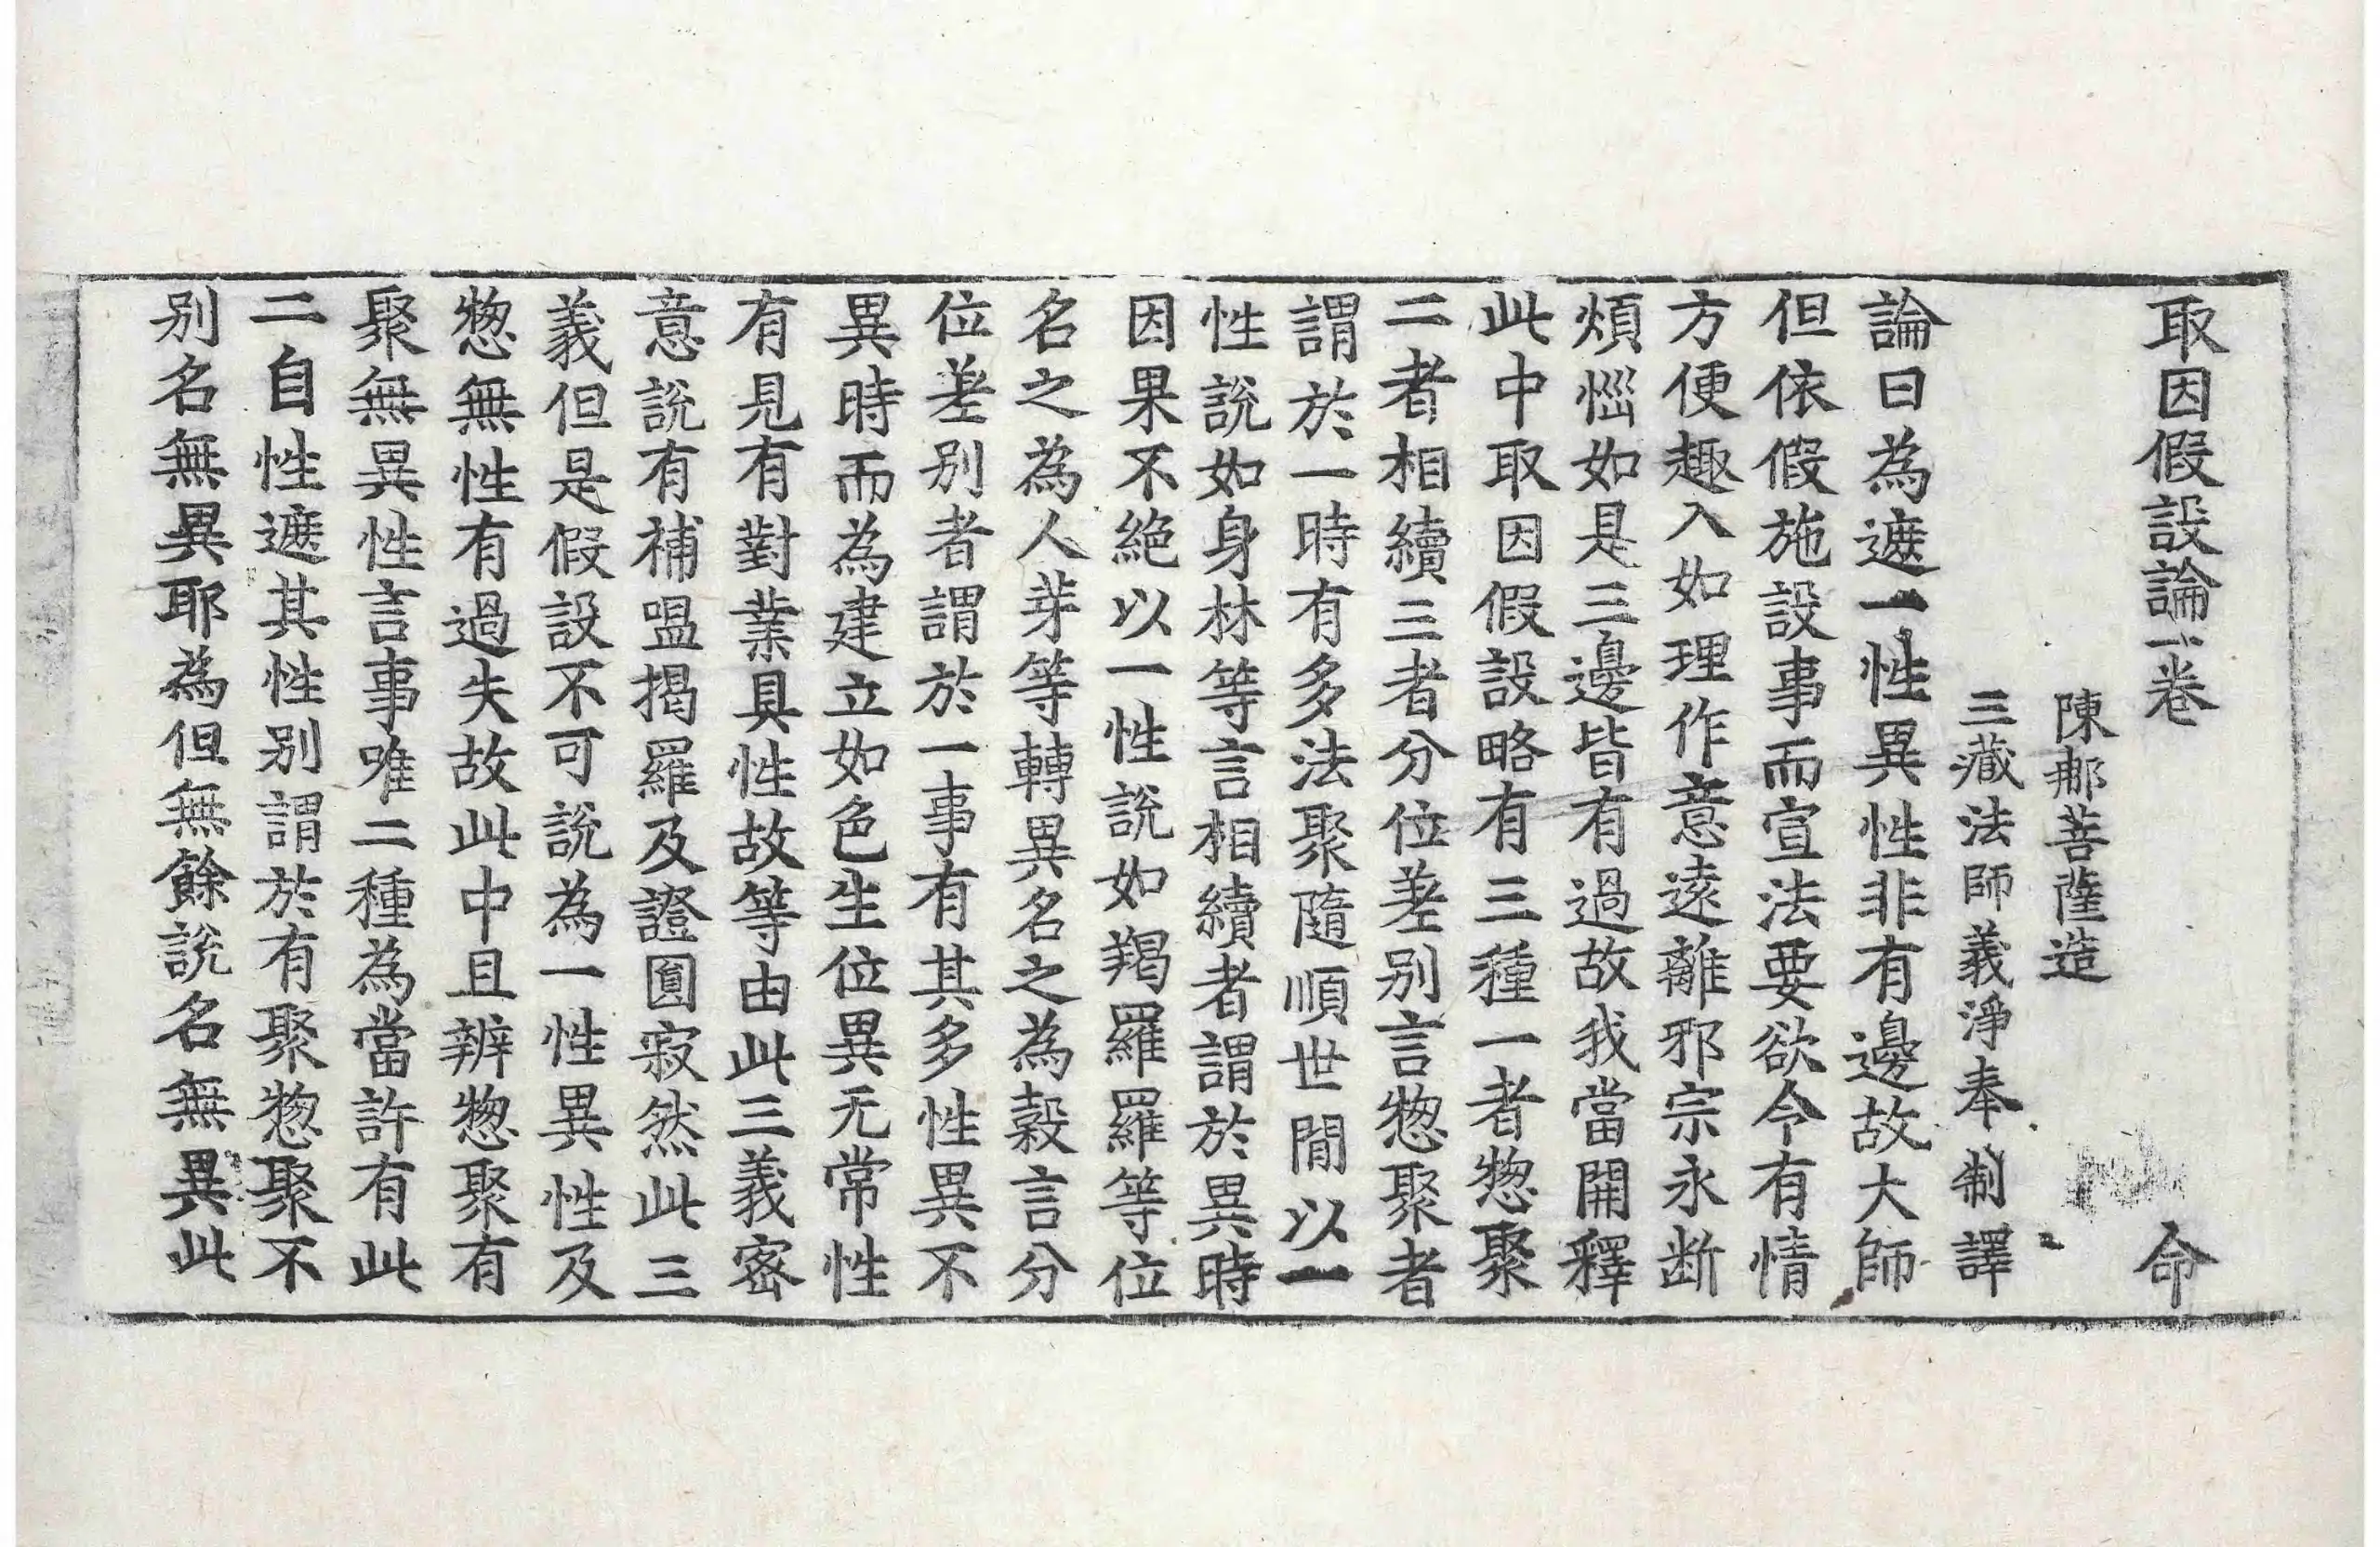 取因假設論一卷 命
陳那菩薩造
三藏法師義淨奉 制譯
論曰為遮一性異性非有邊故大師
但依假施設事而宣法要欲令有情
方便趣入如理作意遠離邪宗永断
煩惱如是三邊皆有過故我當開釋
此中取因假設略有三種一者惣聚
二者相續三者分位差别言惣聚者
謂於一時有多法聚隨順世間以一
性說如身林等言相續者謂於異時
因果不絕以一性說如羯羅羅等位
名之為人芽等轉異名之為糓言分
位差别者謂於一事有其多性異不
異時而為建立如色生位異无常性
有見有對業具性故等由此三義密
意說有補嗢揭羅及證圓寂然此三
義但是假設不可說為一性異性及
惣無性有過失故此中且辨惣聚有
聚無異性言事唯二種為當許有此
二自性遮其性别謂於有聚惣聚不
别名無異耶為但無餘說名無異此